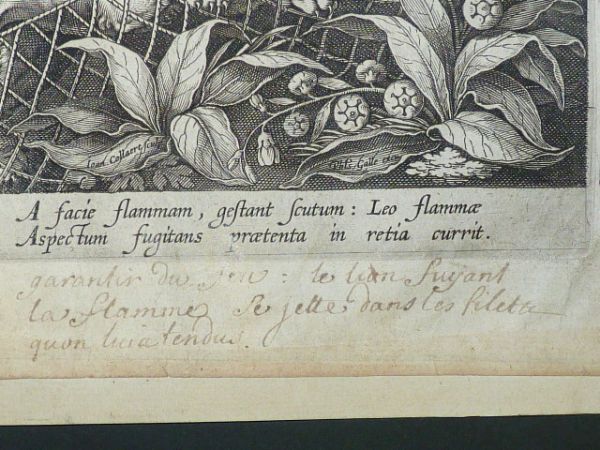 Ioan. Collaert Sculp.
Phls Galle excud.
A facie flammam, gestant scutum: Leo flammæ
Aspectum fugitans prætenta in retia currit.
garantir du feu : le lion fuyant
la flamme se jette dans les filets
quon luia tendus.